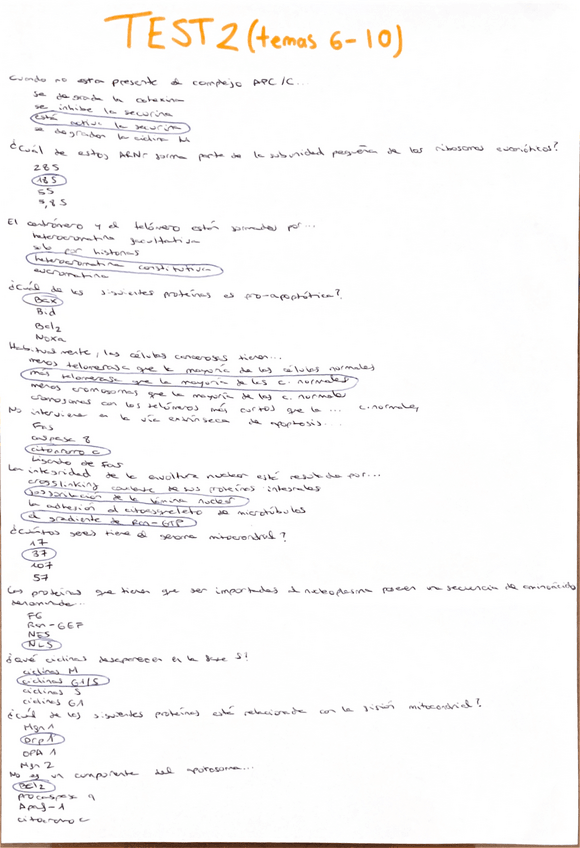 TEST 2 (temas 6-10)
Cuando no está presente el complejo APC/C...
se degrada la cohesina
se inhibe la securina
está activa la securina
se degradan la ciclina M
¿Cuál de estos ARNr forma parte de la subunidad pequeña de los ribosomas eucarióticos?
28S
18S
5S
5,8S
El centrómero y el telómero están formados por...
heterocromatina facultativa
solo por histonas
heterocromatina constitutiva
eucromatina
¿Cuál de las siguientes proteínas es pro-apoptótica?
Bax
Bid
Bcl2
Noxa
Habitualmente, las células cancerosas tienen...
menos telomerasa que la mayoría de las células normales
más telomerasa que la mayoría de las c. normales
menos cromosomas que la mayoría de las c. normales
cromosomas con los telómeros más cortos que la ... c. normales
No interviene en la vía extrínseca de apoptosis...
Fas
caspasa 8
citocromo c
Ligando de Fas
La integridad de la envoltura nuclear está regulada por...
crosslinking de sus proteínas integrales
fosforilación de la lámina nuclear
la adhesión al citoesqueleto de microtúbulos
el gradiente de Ran-GTP
¿Cuántos genes tiene el genoma mitocondrial?
17
37
107
57
Las proteínas que tienen que ser importadas al nucleoplasma poseen una secuencia de aminoácidos
denominada...
FG
Ran-GEF
NES
NLS
¿Qué ciclinas desaparecen en la fase S?
ciclinas M
ciclinas G1/S
ciclinas S
ciclinas G1
¿Cuál de las siguientes proteínas está relacionada con la fisión mitocondrial?
Mfn 1
Drp1
OPA 1
Mfn 2
No es un componente del apoptosoma...
Bcl2
procaspasa 9
Apaf-1
citocromo c